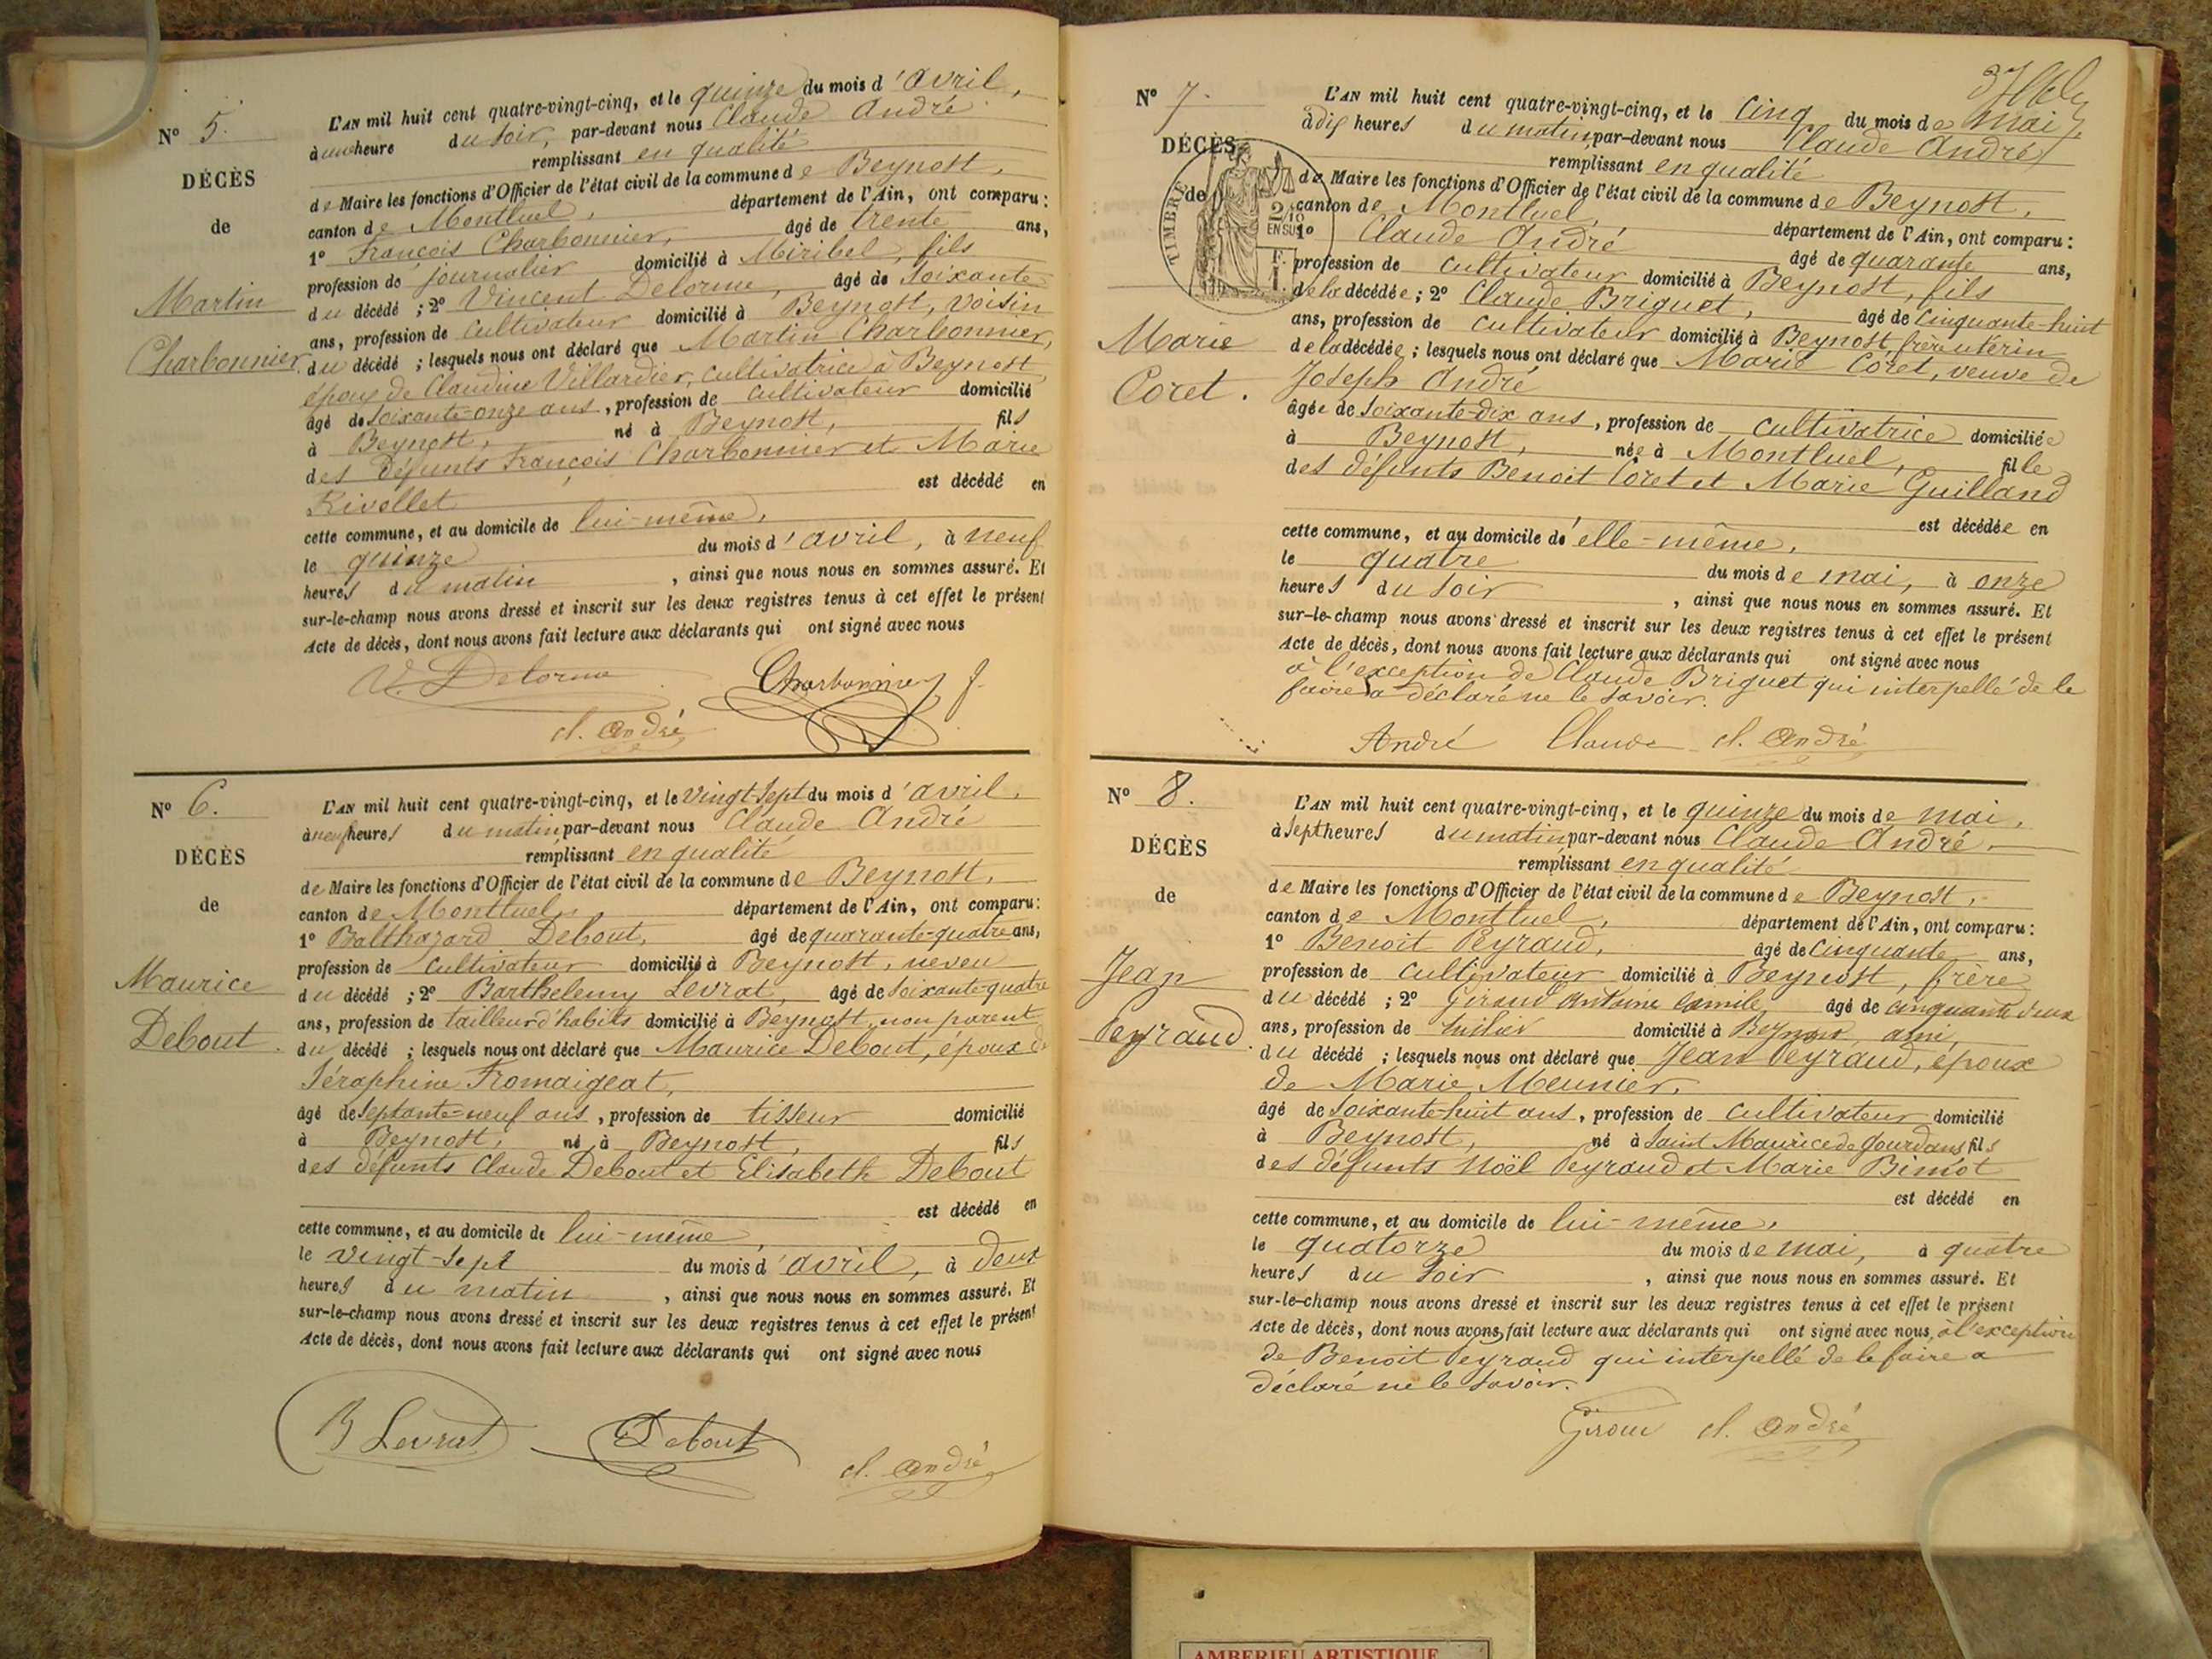 N° 5.
DÉCÈS
de
Martin
Charbonnier
L'AN mil huit cent quatre-vingt-cinq, et le quinze du mois d'avril,
à une heure du soir, par-devant nous Claude André
remplissant en qualité
de Maire les fonctions d'Officier de l'état civil de la commune de Beynost,
canton de Montluel, département de l'Ain, ont comparu :
1° François Charbonnier, âgé de trente ans,
profession de journalier domicilié à Miribel, fils
du décédé ; 2° Vincent Delorme, âgé de soixante
ans, profession de cultivateur domicilié à Beynost, voisin
du décédé ; lesquels nous ont déclaré que Martin Charbonnier,
époux de Claudine Villardier, cultivatrice à Beynost
âgé de soixante-onze ans, profession de cultivateur domicilié
à Beynost, né à Beynost, fils
des défunts François Charbonnier et Marie
Rivollet est décédé en
cette commune, et au domicile de lui-même,
le quinze du mois d'avril, à neuf
heures du matin, ainsi que nous nous en sommes assuré. Et
sur-le-champ nous avons dressé et inscrit sur les deux registres tenus à cet effet le présent
Acte de décès, dont nous avons fait lecture aux déclarants qui ont signé avec nous
V. Delorme Charbonnier f.
cl. André
N° 6.
DÉCÈS
de
Maurice
Debout.
L'AN mil huit cent quatre-vingt-cinq, et le vingt-sept du mois d'avril,
à neuf heures du matin par-devant nous Claude André
remplissant en qualité
de Maire les fonctions d'Officier de l'état civil de la commune de Beynost,
canton de Montluel, département de l'Ain, ont comparu :
1° Balthazard Debout, âgé de quarante-quatre ans,
profession de cultivateur domicilié à Beynost, neveu
du décédé ; 2° Barthelemy Levrat, âgé de soixante-quatre
ans, profession de tailleur d'habits domicilié à Beynost, non parent
du décédé ; lesquels nous ont déclaré que Maurice Debout, époux de
Séraphine Fromaigeat,
âgé de septante-neuf ans, profession de tisseur domicilié
à Beynost, né à Beynost, fils
des défunts Claude Debout et Elisabeth Debout
est décédé en
cette commune, et au domicile de lui-même,
le vingt-sept du mois d'avril, à deux
heures du matin, ainsi que nous nous en sommes assuré. Et
sur-le-champ nous avons dressé et inscrit sur les deux registres tenus à cet effet le présent
Acte de décès, dont nous avons fait lecture aux déclarants qui ont signé avec nous
B Levrat Debout cl. André
37
N° 7.
DÉCÈS
de
TIMBRE
2/10
EN SUS
F.
Marie
Coret.
L'AN mil huit cent quatre-vingt-cinq, et le cinq du mois de mai,
à dix heures du matin, par-devant nous Claude André,
remplissant en qualité
de Maire les fonctions d'Officier de l'état civil de la commune de Beynost,
canton de Montluel, département de l'Ain, ont comparu :
1° Claude André âgé de quarante ans,
profession de cultivateur domicilié à Beynost, fils
de la décédée ; 2° Claude Briguet, âgé de cinquante-huit
ans, profession de cultivateur domicilié à Beynost frère uterin
de la décédée ; lesquels nous ont déclaré que Marie Coret, veuve de
Joseph André
âgée de soixante-dix ans, profession de cultivatrice domiciliée
à Beynost, née à Montluel, fille
des défunts Benoit Coret et Marie Guilland
est décédée en
cette commune, et au domicile d'elle-même,
le quatre du mois de mai, à onze
heures du soir, ainsi que nous nous en sommes assuré. Et
sur-le-champ nous avons dressé et inscrit sur les deux registres tenus à cet effet le présent
Acte de décès, dont nous avons fait lecture aux déclarants qui ont signé avec nous
à l'exception de Claude Briguet qui interpellé de le
faire a déclaré ne le savoir.
André Claude cl. André
N° 8.
DÉCÈS
de
Jean
Peyraud.
L'AN mil huit cent quatre-vingt-cinq, et le quinze du mois de mai,
à sept heures du matin par-devant nous Claude André,
remplissant en qualité
de Maire les fonctions d'Officier de l'état civil de la commune de Beynost,
canton de Montluel, département de l'Ain, ont comparu :
1° Benoit Peyraud, âgé de cinquante ans,
profession de cultivateur domicilié à Beynost, frère
du décédé ; 2° Giroud Antoine Camile âgé de cinquante deux
ans, profession de domicilié à Beynost, ami,
du décédé ; lesquels nous ont déclaré que Jean Peyraud, époux
de Marie Meunier,
âgé de soixante-huit ans, profession de cultivateur domicilié
à Beynost, né à Saint Maurice de Gourdans fils
des défunts Noël Peyraud et Marie Bimot
est décédé en
cette commune, et au domicile de lui-même,
le quatorze du mois de mai, à quatre
heures du soir, ainsi que nous nous en sommes assuré. Et
sur-le-champ nous avons dressé et inscrit sur les deux registres tenus à cet effet le présent
Acte de décès, dont nous avons fait lecture aux déclarants qui ont signé avec nous, à l'exception
de Benoit Peyraud qui interpellé de le faire a
déclaré ne le savoir.
Giroud cl. André
AMBERIEU ARTISTIQUE